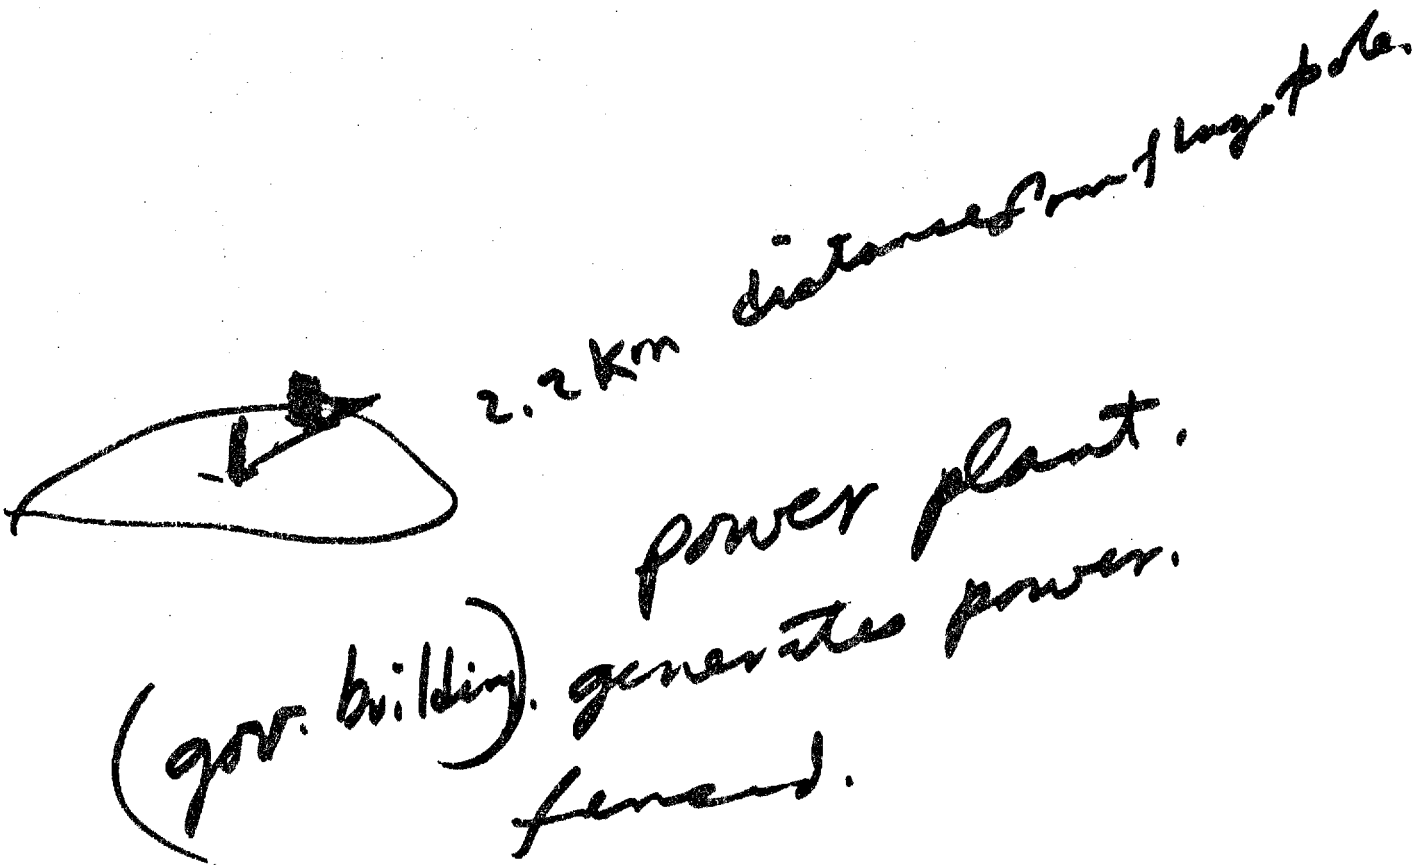 2.2 Km distance from flag.pole.
power plant.
(gov. building). generates power.
fenced.